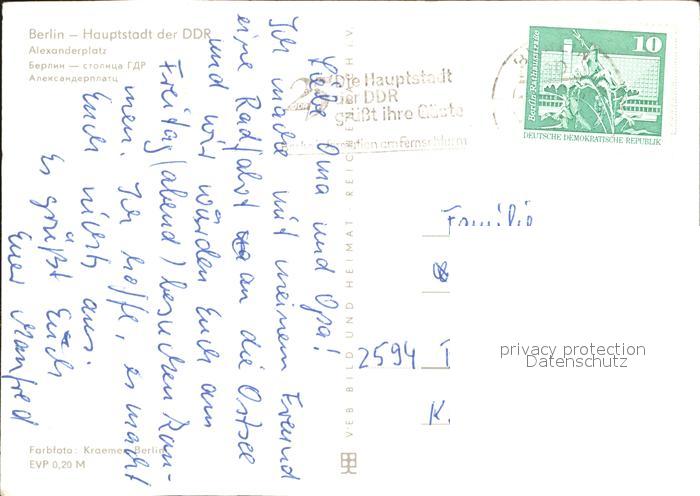 Berlin – Hauptstadt der DDR
Alexanderplatz
Берлин – столица ГДР
Александерплатц
Liebe Oma und Opa!
Ich mache mit meinem Freund
eine Radfahrt an die Ostsee
und wir würden Euch am
Freitag (abend) besuchen kom-
men. Ich hoffe, es macht
Euch nichts aus.
Es grüßt Euch
Euer Manfred
Farbfoto: Kraemer, Berlin
EVP 0,20 M
VEB BILD UND HEIMAT REICHENBACH I. V.
Die Hauptstadt
der DDR
grüßt ihre Gäste
am Fernsehturm
10
Berlin, Rathausstraße
DEUTSCHE DEMOKRATISCHE REPUBLIK
Familie
2594
K.
privacy protection
Datenschutz